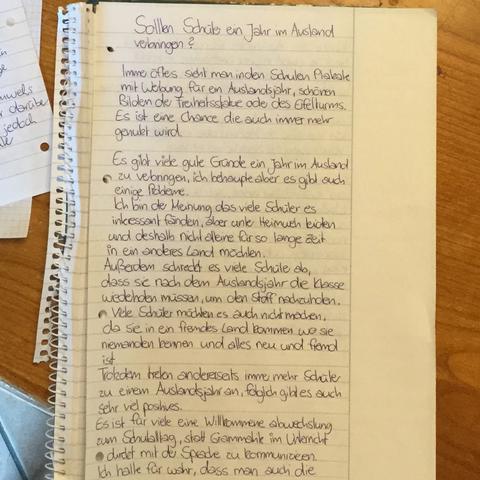 Sollten Schüler ein Jahr im Ausland
verbringen?
Immer öfter sieht man in den Schulen Plakate
mit Werbung für ein Auslandsjahr, schönen
Bildern der Freiheitsstatue oder des Eifelturms.
Es ist eine Chance die auch immer mehr
genutzt wird.
Es gibt viele gute Gründe ein Jahr im Ausland
zu verbringen, ich behaupte aber es gibt auch
einige Probleme.
Ich bin der Meinung das viele Schüler es
interessant fänden, aber unter Heimweh leiden
und deshalb nicht alleine für so lange Zeit
in ein anderes Land möchten.
Außerdem schreckt es viele Schüler ab,
dass sie nach dem Auslandsjahr die Klasse
wiederholen müssen, um den Stoff nachzuholen.
Viele Schüler möchten es auch nicht machen,
da sie in ein fremdes Land kommen wo sie
niemanden kennen und alles neu und fremd
ist.
Trotzdem treten andererseits immer mehr Schüler
zu einem Auslandsjahr an, folglich gibt es auch
sehr viel positives.
Es ist für viele eine Willkommene abwechslung
zum Schulalltag, statt Grammatik im Unterricht
direkt mit der Sprache zu kommunizieren.
Ich halte für wahr, dass man auch die
darüber
jedoch